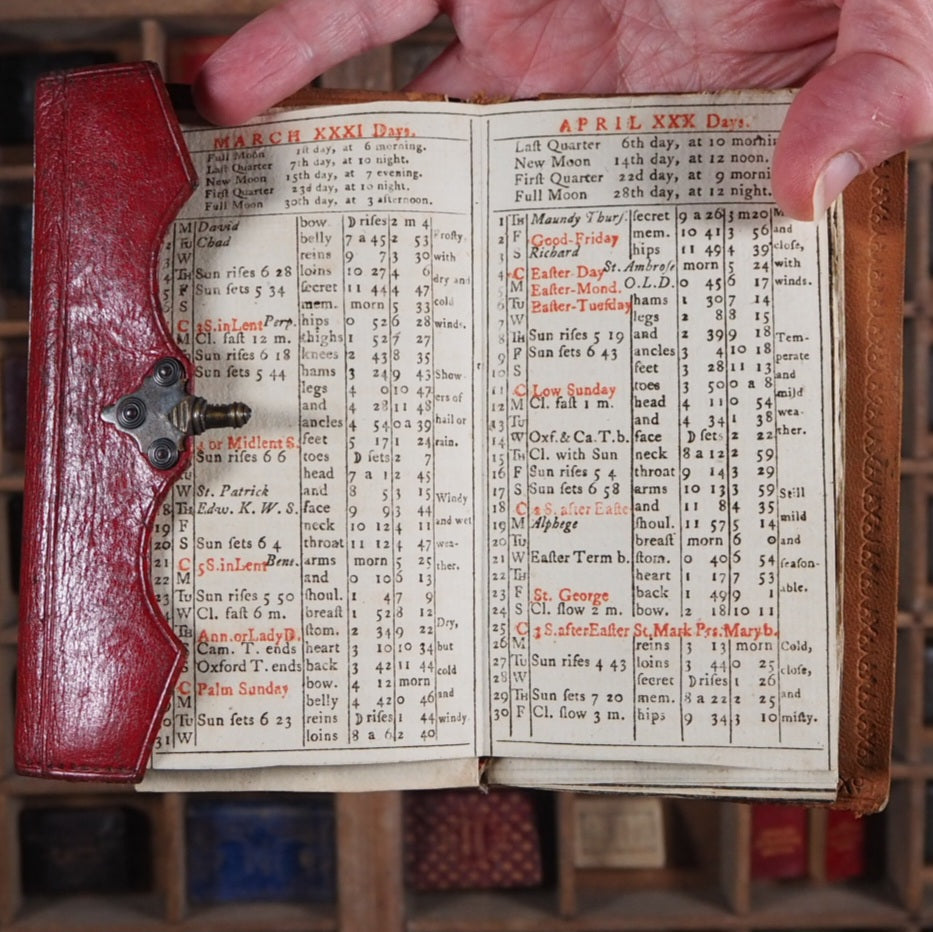 MARCH XXXI Days.
Full Moon 1ſt day, at 6 morning.
Laſt Quarter 7th day, at 10 night.
New Moon 15th day, at 7 evening.
Firſt Quarter 23d day, at 10 night.
Full Moon 30th day, at 3 afternoon.
M David bow. D riſes 2 m 4
2 Tu Chad belly 7 a 45 2 53 Froſty,
3 W reins 9 7 3 30 with
4 Th Sun riſes 6 28 loins 10 27 4 6 dry and
5 F Sun ſets 5 34 ſecret 11 44 4 47
S mem. morn 5 33 cold
C 3S.inLent Perp. hips 0 52 6 28 winds.
M Cl. faſt 12 m. thighs 1 52 7 27
Tu Sun riſes 6 18 knees 2 43 8 35
Sun ſets 5 44 hams 3 24 9 43 Show
legs 4 0 10 47 ers of
and 4 28 11 48
ancles 4 54 0 a 39 hail or
4 or Midlent S. feet 5 17 1 24 rain.
Sun riſes 6 6 toes D ſets 2 7
head 7 a 1 2 45
W St. Patrick and 8 5 3 15 Windy
18 Th Edw. K. W. S. face 9 9 3 44
19 F neck 10 12 4 11 and wet
20 S Sun ſets 6 4 throat 11 12 4 47 wea-
21 C 5S.inLent Bene. arms morn 5 25 ther.
22 M and 0 10 6 13
23 Tu Sun riſes 5 50 ſhoul. 1 4 7 9
W Cl. faſt 6 m. breaſt 1 52 8 12
Th Ann.orLadyD. ſtom. 2 34 9 22 Dry,
Cam. T. ends heart 3 10 10 34 but
S Oxford T. ends back 3 42 11 44 cold
C Palm Sunday bow. 4 12 morn
M belly 4 42 0 46 and
30 Tu Sun ſets 6 23 reins D riſes 1 44 windy.
31 W loins 8 a 6 2 40
APRIL XXX Days.
Laſt Quarter 6th day, at 10 morni
New Moon 14th day, at 12 noon.
Firſt Quarter 22d day, at 9 morni
Full Moon 28th day, at 12 night.
1 Th Maundy Thurſ. ſecret 9 a 26 3 m 20
2 F Good-Friday mem. 10 41 3 56 and
3 S Richard hips 11 49 4 39 cloſe,
4 C Eaſter Day St. Ambroſe morn 5 24 with
5 M Eaſter-Mond. O.L.D. 0 45 6 17 winds.
6 Tu Eaſter-Tueſday hams 1 30 7 14
7 W legs 2 8 8 15
8 Th Sun riſes 5 19 and 2 39 9 18 Tem-
9 F Sun ſets 6 43 ancles 3 4 10 18 perate
10 S feet 3 28 11 13 and
11 C Low Sunday toes 3 50 0 a 8 mild
12 M Cl. faſt 1 m. head 4 11 0 54
13 Tu and 4 34 1 38 wea-
14 W Oxf. & Ca. T. b. face D ſets 2 22 ther.
15 Th Cl. with Sun neck 8 a 12 2 59
16 F Sun riſes 5 4 throat 9 14 3 29
17 S Sun ſets 6 58 arms 10 13 3 59 Still
18 C 2 S. after Eaſte and 11 8 4 35
19 M Alphege ſhoul. 11 57 5 14 mild
20 Tu breaſt morn 6 0 and
21 W Eaſter Term b. ſtom. 0 40 6 54 ſeaſon-
22 Th heart 1 17 7 53
23 F St. George back 1 49 9 1 able.
24 S Cl. ſlow 2 m. bow. 2 18 10 11
25 C 3 S.afterEaſter St. Mark Prs. Mary b.
26 M reins 3 13 morn Cold,
27 Tu Sun riſes 4 43 loins 3 44 0 25 cloſe,
28 W ſecret D riſes 1 26
29 Th Sun ſets 7 20 mem. 8 a 22 2 25 and
30 F Cl. ſlow 3 m. hips 9 34 3 10 miſty.